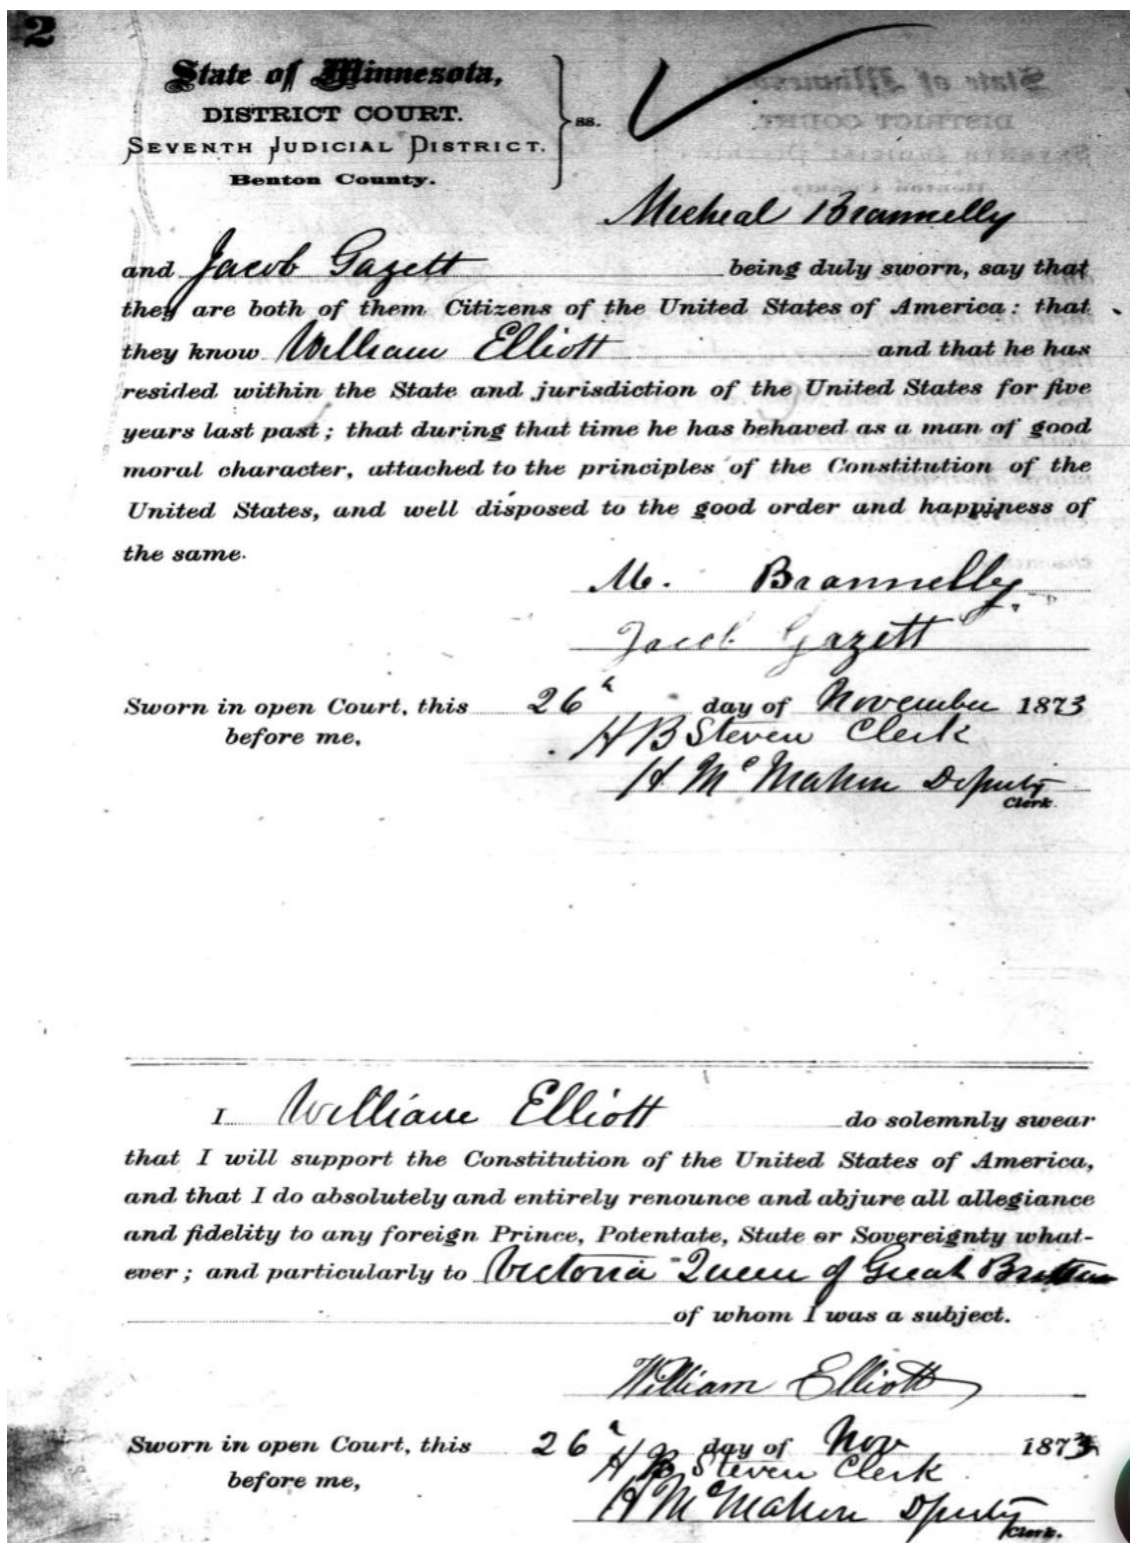 2
State of Minnesota,
DISTRICT COURT.
SEVENTH JUDICIAL DISTRICT.
Benton County.
ss.
Micheal Brannelly
and Jacob Gazett being duly sworn, say that
they are both of them Citizens of the United States of America: that
they know William Elliott and that he has
resided within the State and jurisdiction of the United States for five
years last past; that during that time he has behaved as a man of good
moral character, attached to the principles of the Constitution of the
United States, and well disposed to the good order and happiness of
the same.
M. Brannelly
Jacob Gazett
Sworn in open Court, this 26th day of November 1873
before me, H B Steven Clerk
H McMahon Deputy
Clerk.
I William Elliott do solemnly swear
that I will support the Constitution of the United States of America,
and that I do absolutely and entirely renounce and abjure all allegiance
and fidelity to any foreign Prince, Potentate, State or Sovereignty what-
ever; and particularly to Victoria Queen of Great Brittan
of whom I was a subject.
William Elliott
Sworn in open Court, this 26th day of Nov 1873
before me, H B Steven Clerk
H McMahon Dputy
Clerk.